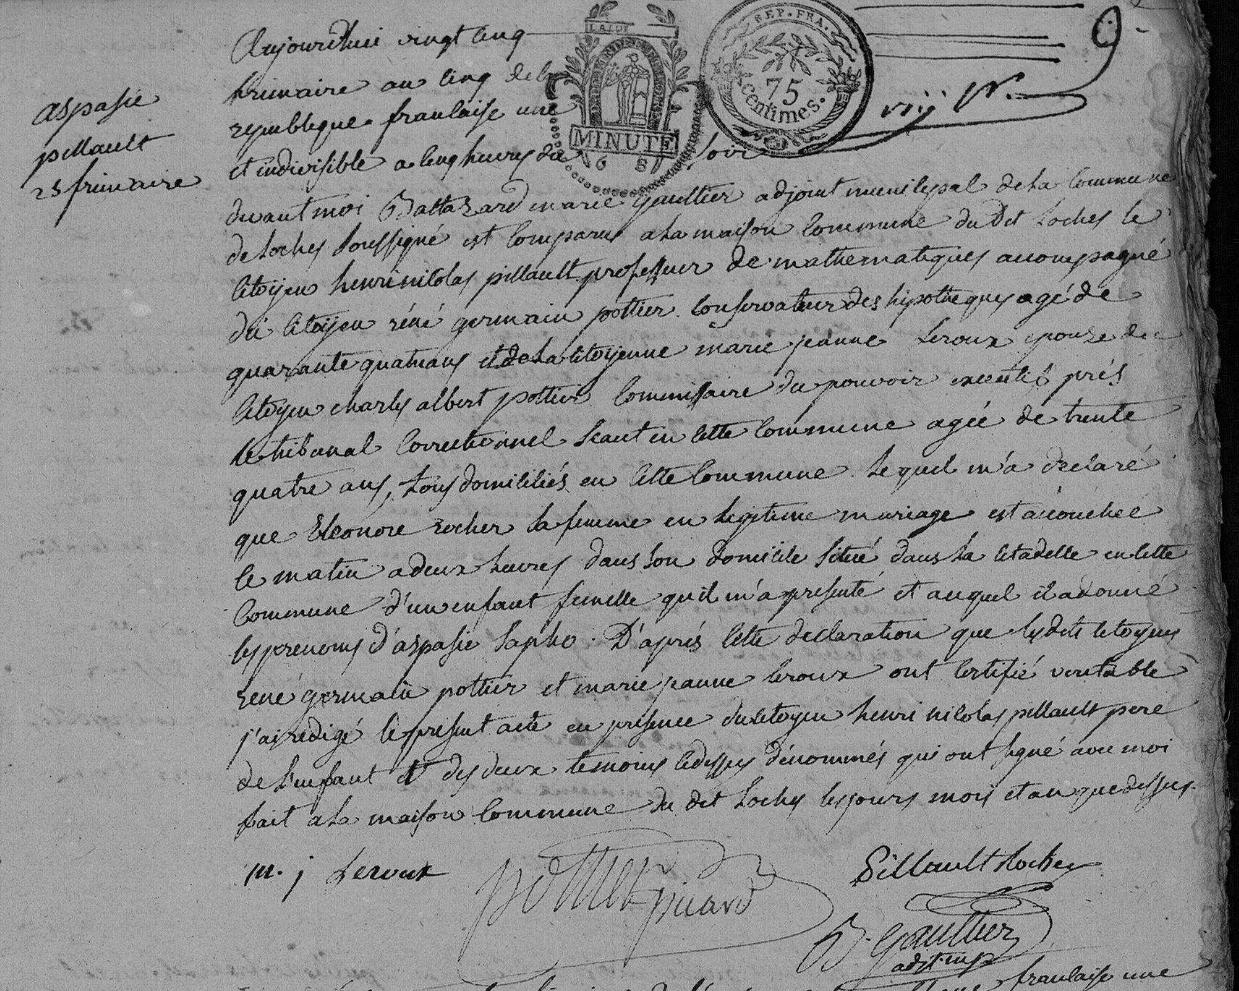 aspasie
pillault
25 frimaire
LA LOI
MINUTE
6 8
REP. FRA.
75
centimes.
9
viij Vr.
Aujourdhui vingt cinq
frimaire an cinq de la
republique francaise une
et indivisible a cinq heures du soir
devant moi Baltazard marie Gaultier adjoint municipal de la Commune
de Loches soussigné est comparu a la maison Commune du dit Loches le
citoyen henri nicolas pillault professeur de mathematiques accompagné
du citoyen réné germain pottier conservateur des hypotheques agé de
quarante quatre ans et de la citoyenne marie jeanne Leroux epouse du
citoyen charles albert pottier commissaire du pouvoir executif prés
le tribunal correctionnel seant en cette commune agée de trente
quatre ans, tous domiciliés en cette Commune. lequel m'a declaré
que Eleonore rocher sa femme en legitime mariage est accouchée
ce matin a deux heures dans son domicile situé dans la citadelle en cette
Commune d'un enfant femelle qu'il m'a presenté et auquel il a donné
les prenoms d'aspasie sapho. D'aprés cette declaration que lesdits citoyens
rené germain pottier et marie jeanne leroux ont certifié veritable
j'ai redigé le present acte en presence du citoyen henri nicolas pillault pere
de l'enfant et des deux temoins cidessus dénommés qui ont signé avec moi
fait a la maison Commune du dit Loches les jours mois et an que dessus.
m. j Leroux
pottier
picard
Pillault Rocher
B. Gaultier
adjt. mp
francaise une